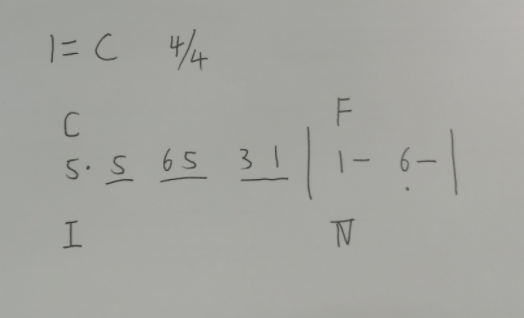 1=C 4/4
C F
5· 5 65 31 | 1- 6̣- |
I IV